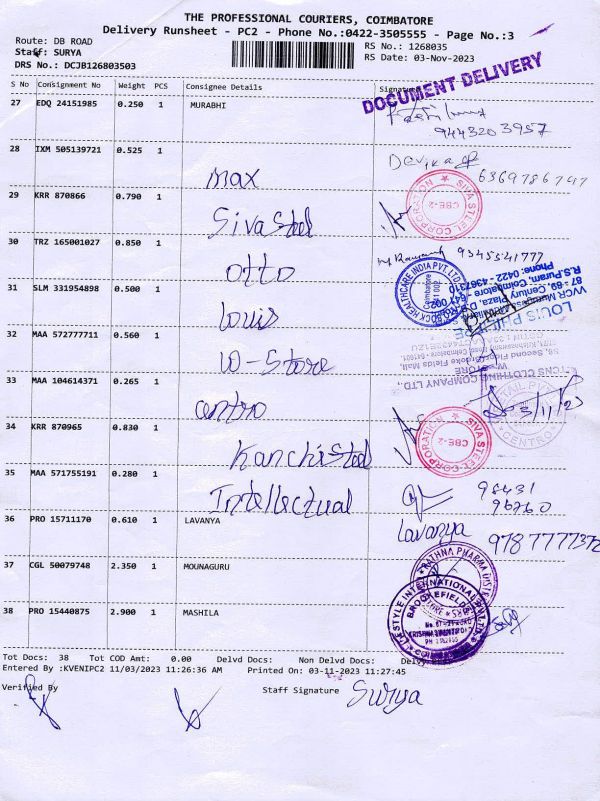 THE PROFESSIONAL COURIERS, COIMBATORE
Delivery Runsheet - PC2 - Phone No.:0422-3505555 - Page No.:3
Route: DB ROAD
RS No.: 1268035
Staff: SURYA
RS Date: 03-Nov-2023
DRS No.: DCJB126803503
DOCUMENT DELIVERY
S No Consignment No Weight PCS Consignee Details Signature
27 EDQ 24151985 0.250 1 MURABHI
9443203957
28 IXM 505139721 0.525 1 Max Devika 6369786747
29 KRR 870866 0.790 1 Siva Steel
SIVA STEEL CORPORATION CBE-2
30 TRZ 165001027 0.850 1 otto 9345541777
31 SLM 331954898 0.500 1 Louis
HEALTHCARE INDIA PVT. LTD
LOUIS PHILIPPE
R.S.Puram, Coimbatore - 641 002
Phone: 0422 - 4367310
32 MAA 572777711 0.560 1 W-Store
CLOTHING COMPANY LTD.,
W-STORE
33 MAA 104614371 0.265 1 Centro 3/11/23
CENTRO
34 KRR 870965 0.830 1 Kanchi Steel
SIVA STEEL CORPORATION CBE-2
35 MAA 571755191 0.280 1 Intellectual 98431
96760
36 PRO 15711170 0.610 1 LAVANYA Lavanya 9787777372
37 CGL 50079748 2.350 1 MOUNAGURU
RATHNA PHARMA DIST
38 PRO 15440875 2.900 1 MASHILA
LIFESTYLE INTERNATIONAL PVT LTD
BROOKEFIELDS
Tot Docs: 38 Tot COD Amt: 0.00 Delvd Docs: Non Delvd Docs:
Entered By :KVENIPC2 11/03/2023 11:26:36 AM Printed On: 03-11-2023 11:27:45
Verified By Staff Signature Surya